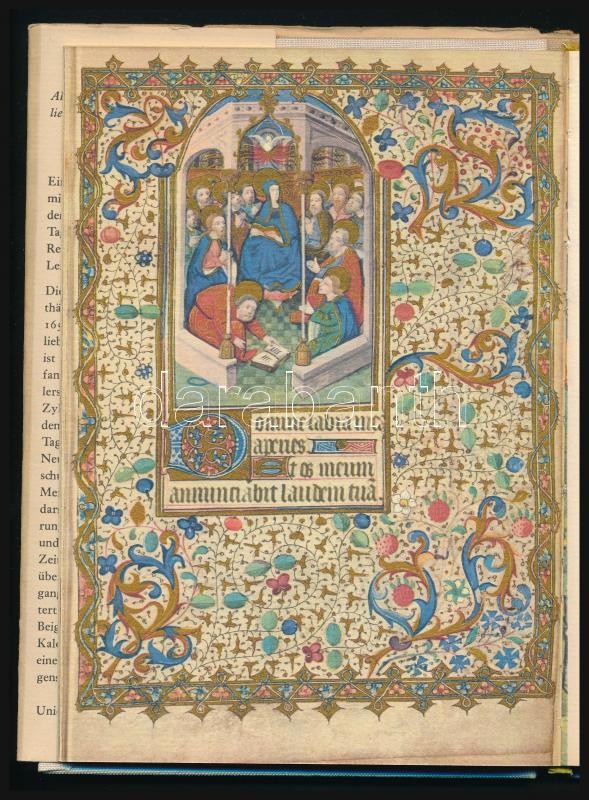 Ein
mi
den
Tag
Re
Le
Die
thä
169
lieb
ist
fan
lers
Zyl
den
Tag
Neu
sch
Me
dar
run
und
Zei
übe
gan
tert
Beig
Kale
eine
gens
Unio
Domine labia me
aperies
Et os meum
annunciabit laudem tuā.
darabanth